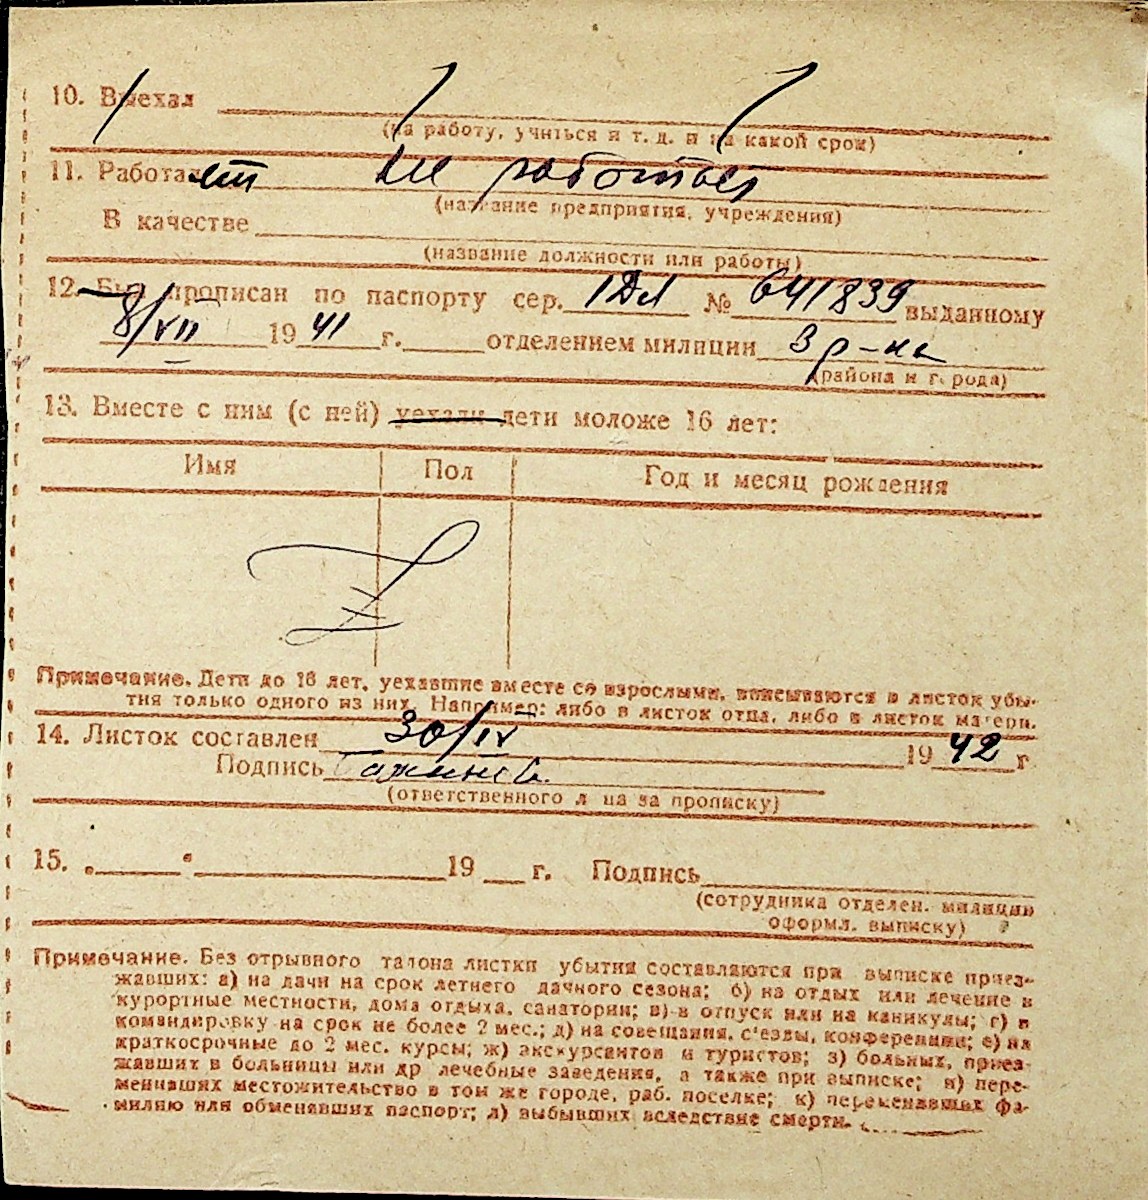 10. Выехал
(на работу, учиться и т. д. и на какой срок)
11. Работает не работает
(название предприятия, учреждения)
В качестве
(название должности или работы)
12. Был прописан по паспорту сер. № 641839 выданному
8/VII 1941 г. отделением милиции 3 р-на
(района и города)
13. Вместе с ним (с ней) уехали дети моложе 16 лет:
Имя Пол Год и месяц рождения
Примечание. Дети до 16 лет, уехавшие вместе со взрослыми, вписываются в листок убы-
тия только одного из них. Например: либо в листок отца, либо в листок матери.
14. Листок составлен 30/IV 1942 г
Подпись
(ответственного лица за прописку)
15. „ “ 19 г. Подпись
(сотрудника отделен. милиции
оформл. выписку)
Примечание. Без отрывного талона листки убытия составляются при выписке приез-
жавших: а) на дачи на срок летнего дачного сезона; б) на отдых или лечение в
курортные местности, дома отдыха, санатории; в) в отпуск или на каникулы; г) в
командировку на срок не более 2 мес.; д) на совещания, с'езды, конференции; е) на
краткосрочные до 2 мес. курсы; ж) экскурсантов и туристов; з) больных, приез-
жавших в больницы или др лечебные заведения, а также при выписке; и) пере-
менивших местожительство в том же городе, раб. поселке; к) переменивших фа-
милию или обменявших паспорт; л) выбывших вследствие смерти.